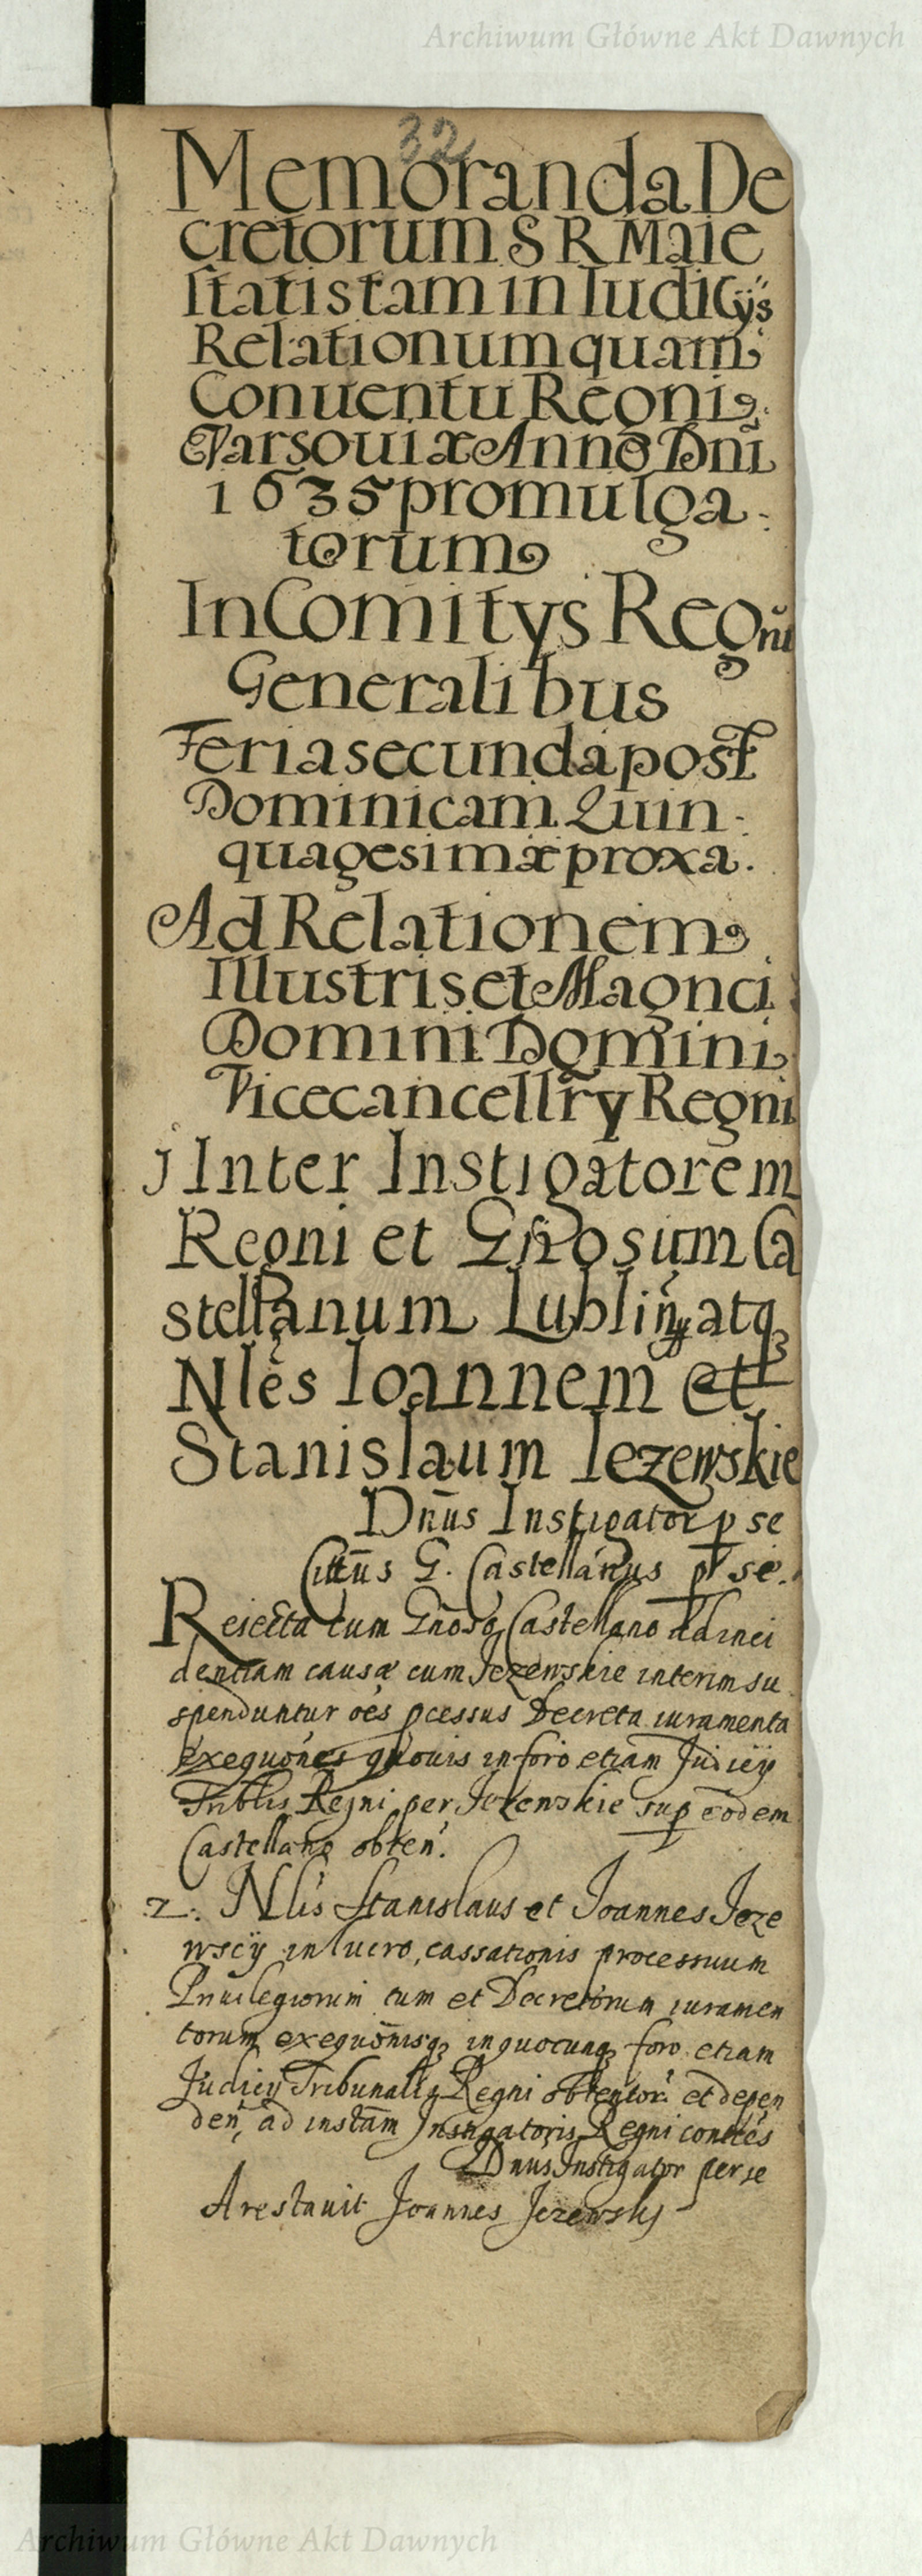 Archiwum Główne Akt Dawnych
32
Memoranda De
cretorum S R Maie
statis tam in Iudicÿs
Relationum quam
Conuentu Regni
Varsouiæ Anno Dni
1635 promulga
torum
In Comitys Regni
Generalibus
Feria secunda post
Dominicam Quin
quagesimæ proxa.
Ad Relationem
Illustris et Magnci
Domini Domini
Vicecancellry Regni
j Inter Instigatorem
Regni et Gnosum Ca
stellanum Lubliń atq
Nles Ioannem et
Stanislaum Iezewskie
Dnus Instigator p se
Citus G. Castellanus p se.
Reiecta cum Gnoso Castellano ad inci
dentiam causæ cum Jezewskie interim su
spenduntur oes pcessus Decreta iuramenta
exequones quouis in foro etiam Judicÿ
Triblis Regni per Jezewskie sup eodem
Castellano obten.
2. Nlis Stanislaus et Joannes Jeze
wscÿ in lucro cassationis processuum
Priuilegiorum tum et Decretorum iuramen
torum exequonisq in quocunq foro etiam
Judicÿ Tribunalis Regni obtentor et depen
den, ad instam Instigatoris Regni conttes
Dnus Instigator per se
Arestauit Joannes Jezewskj
Archiwum Główne Akt Dawnych